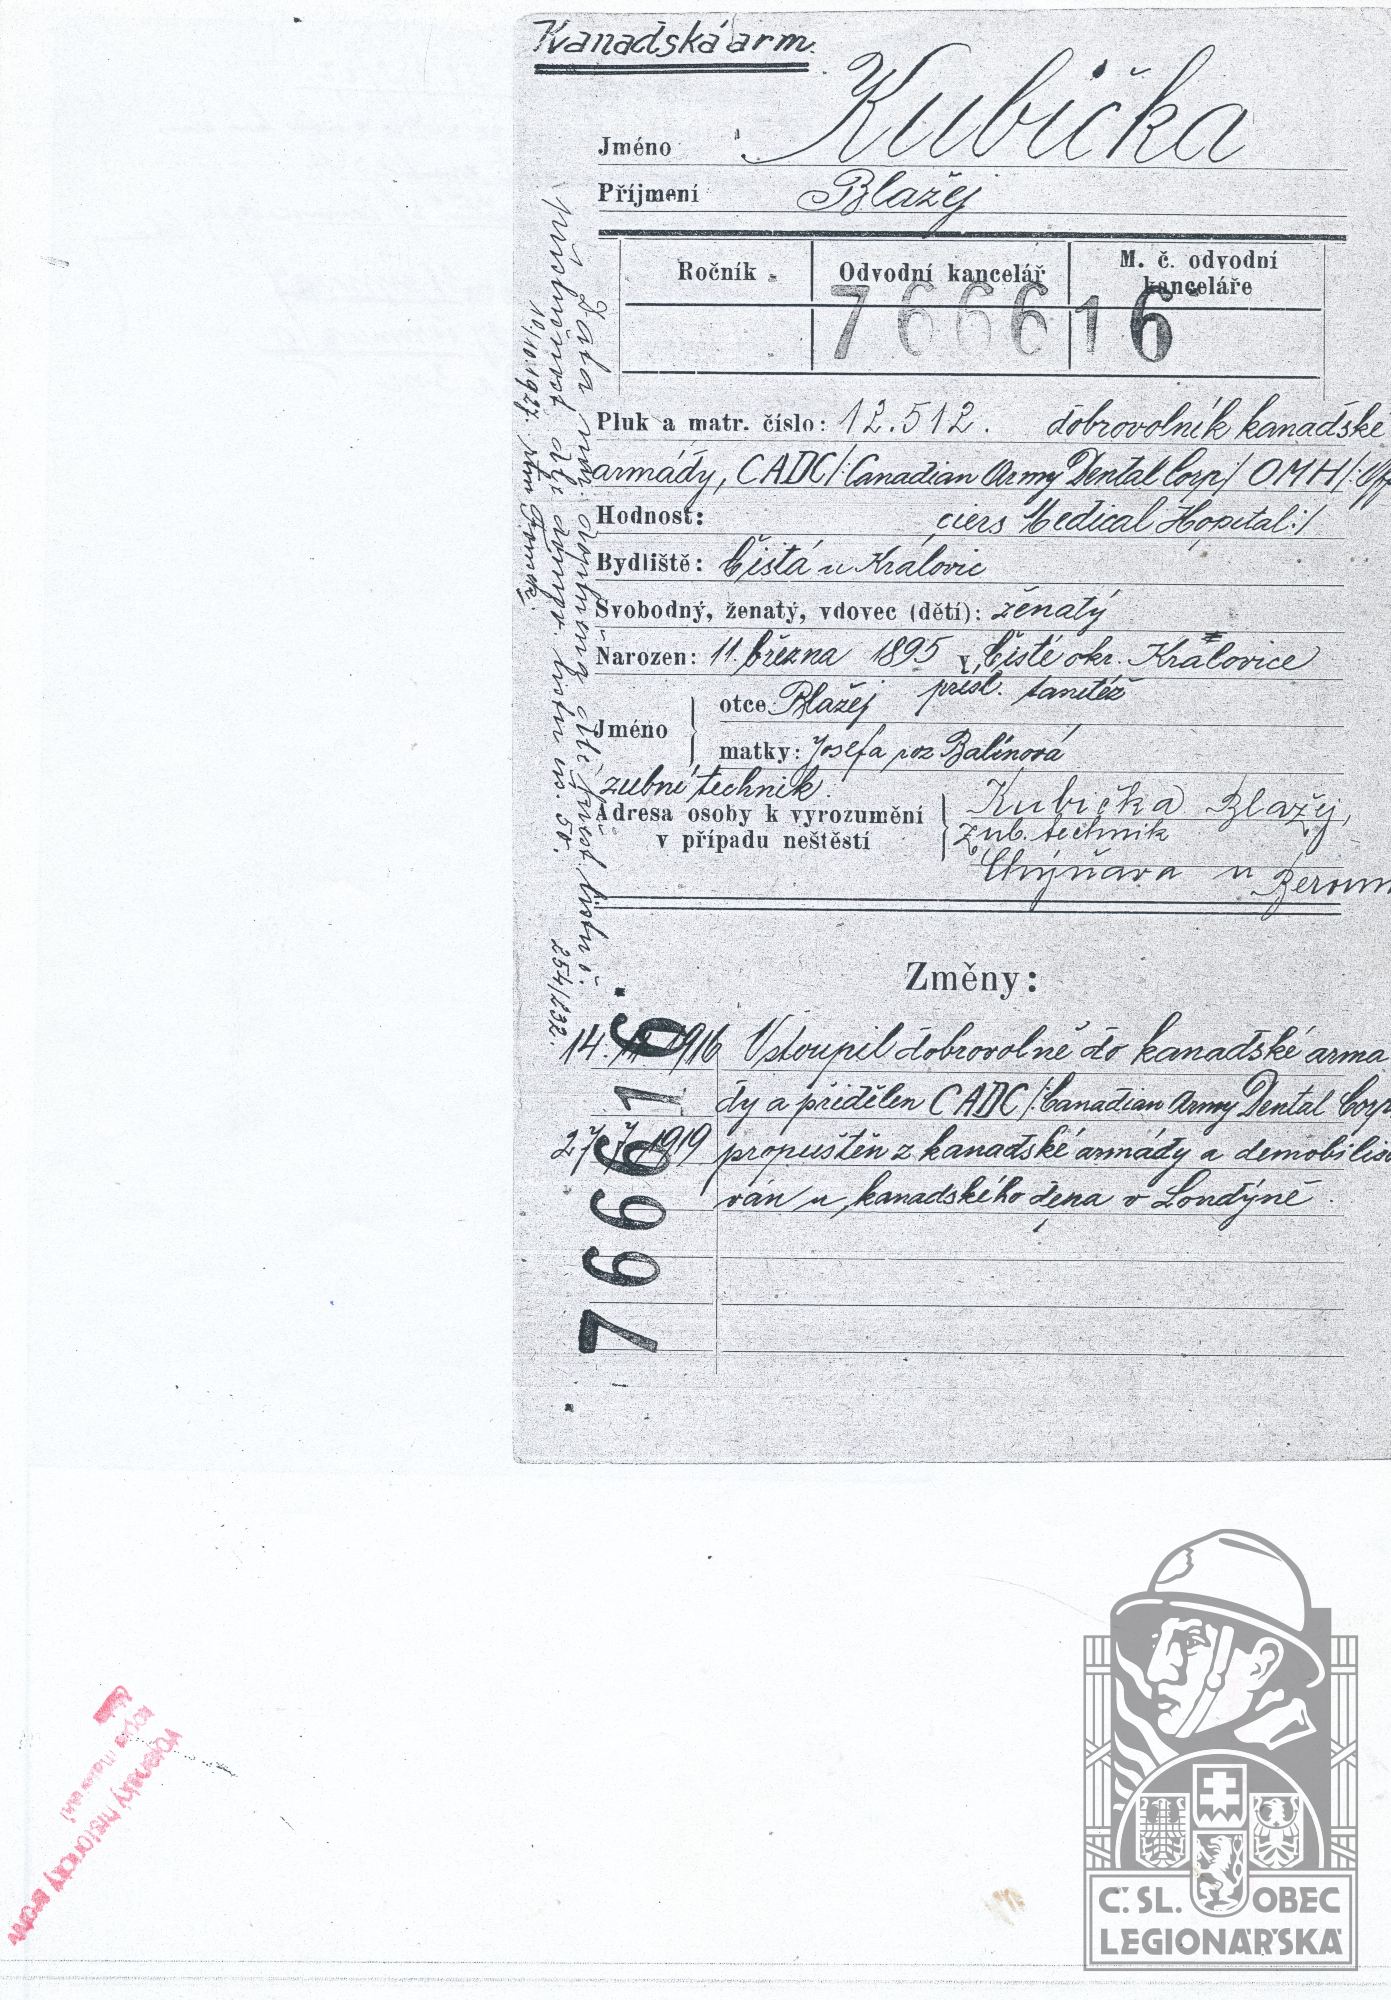 Kanadská arm.
Jméno Kubička
Příjmení Blažej
Ročník
Odvodní kancelář
M. č. odvodní
kanceláře
76661 6
Pluk a matr. číslo: 12.512. dobrovolník kanadské
armády, CADC/:Canadian Army Dental Corp/ OMH/:Offi
Hodnost: ciers Medical Hopital:/
Bydliště: Čistá u Královic
Svobodný, ženatý, vdovec (dětí): ženatý
Narozen: 11. března 1895 v Čisté okr. Královice
přísl. tamtéž
Jméno
otce Blažej
matky: Josefa roz Balínová
zubní technik.
Adresa osoby k vyrozumění
v případu neštěstí
Kubička Blažej,
zub. technik
Chyňava u Beroun
Změny:
14. 1916 Vstoupil dobrovolně do kanadské armá
dy a přidělen CADC/:Canadian Army Dental Corp
27 7 1919 propuštěn z kanadské armády a demobiliso
ván u kanadského dena v Londýně.
766616
254/232.
10./10. 1927.
Vojenský historický archiv
Č. SL. OBEC
LEGIONÁŘSKÁ